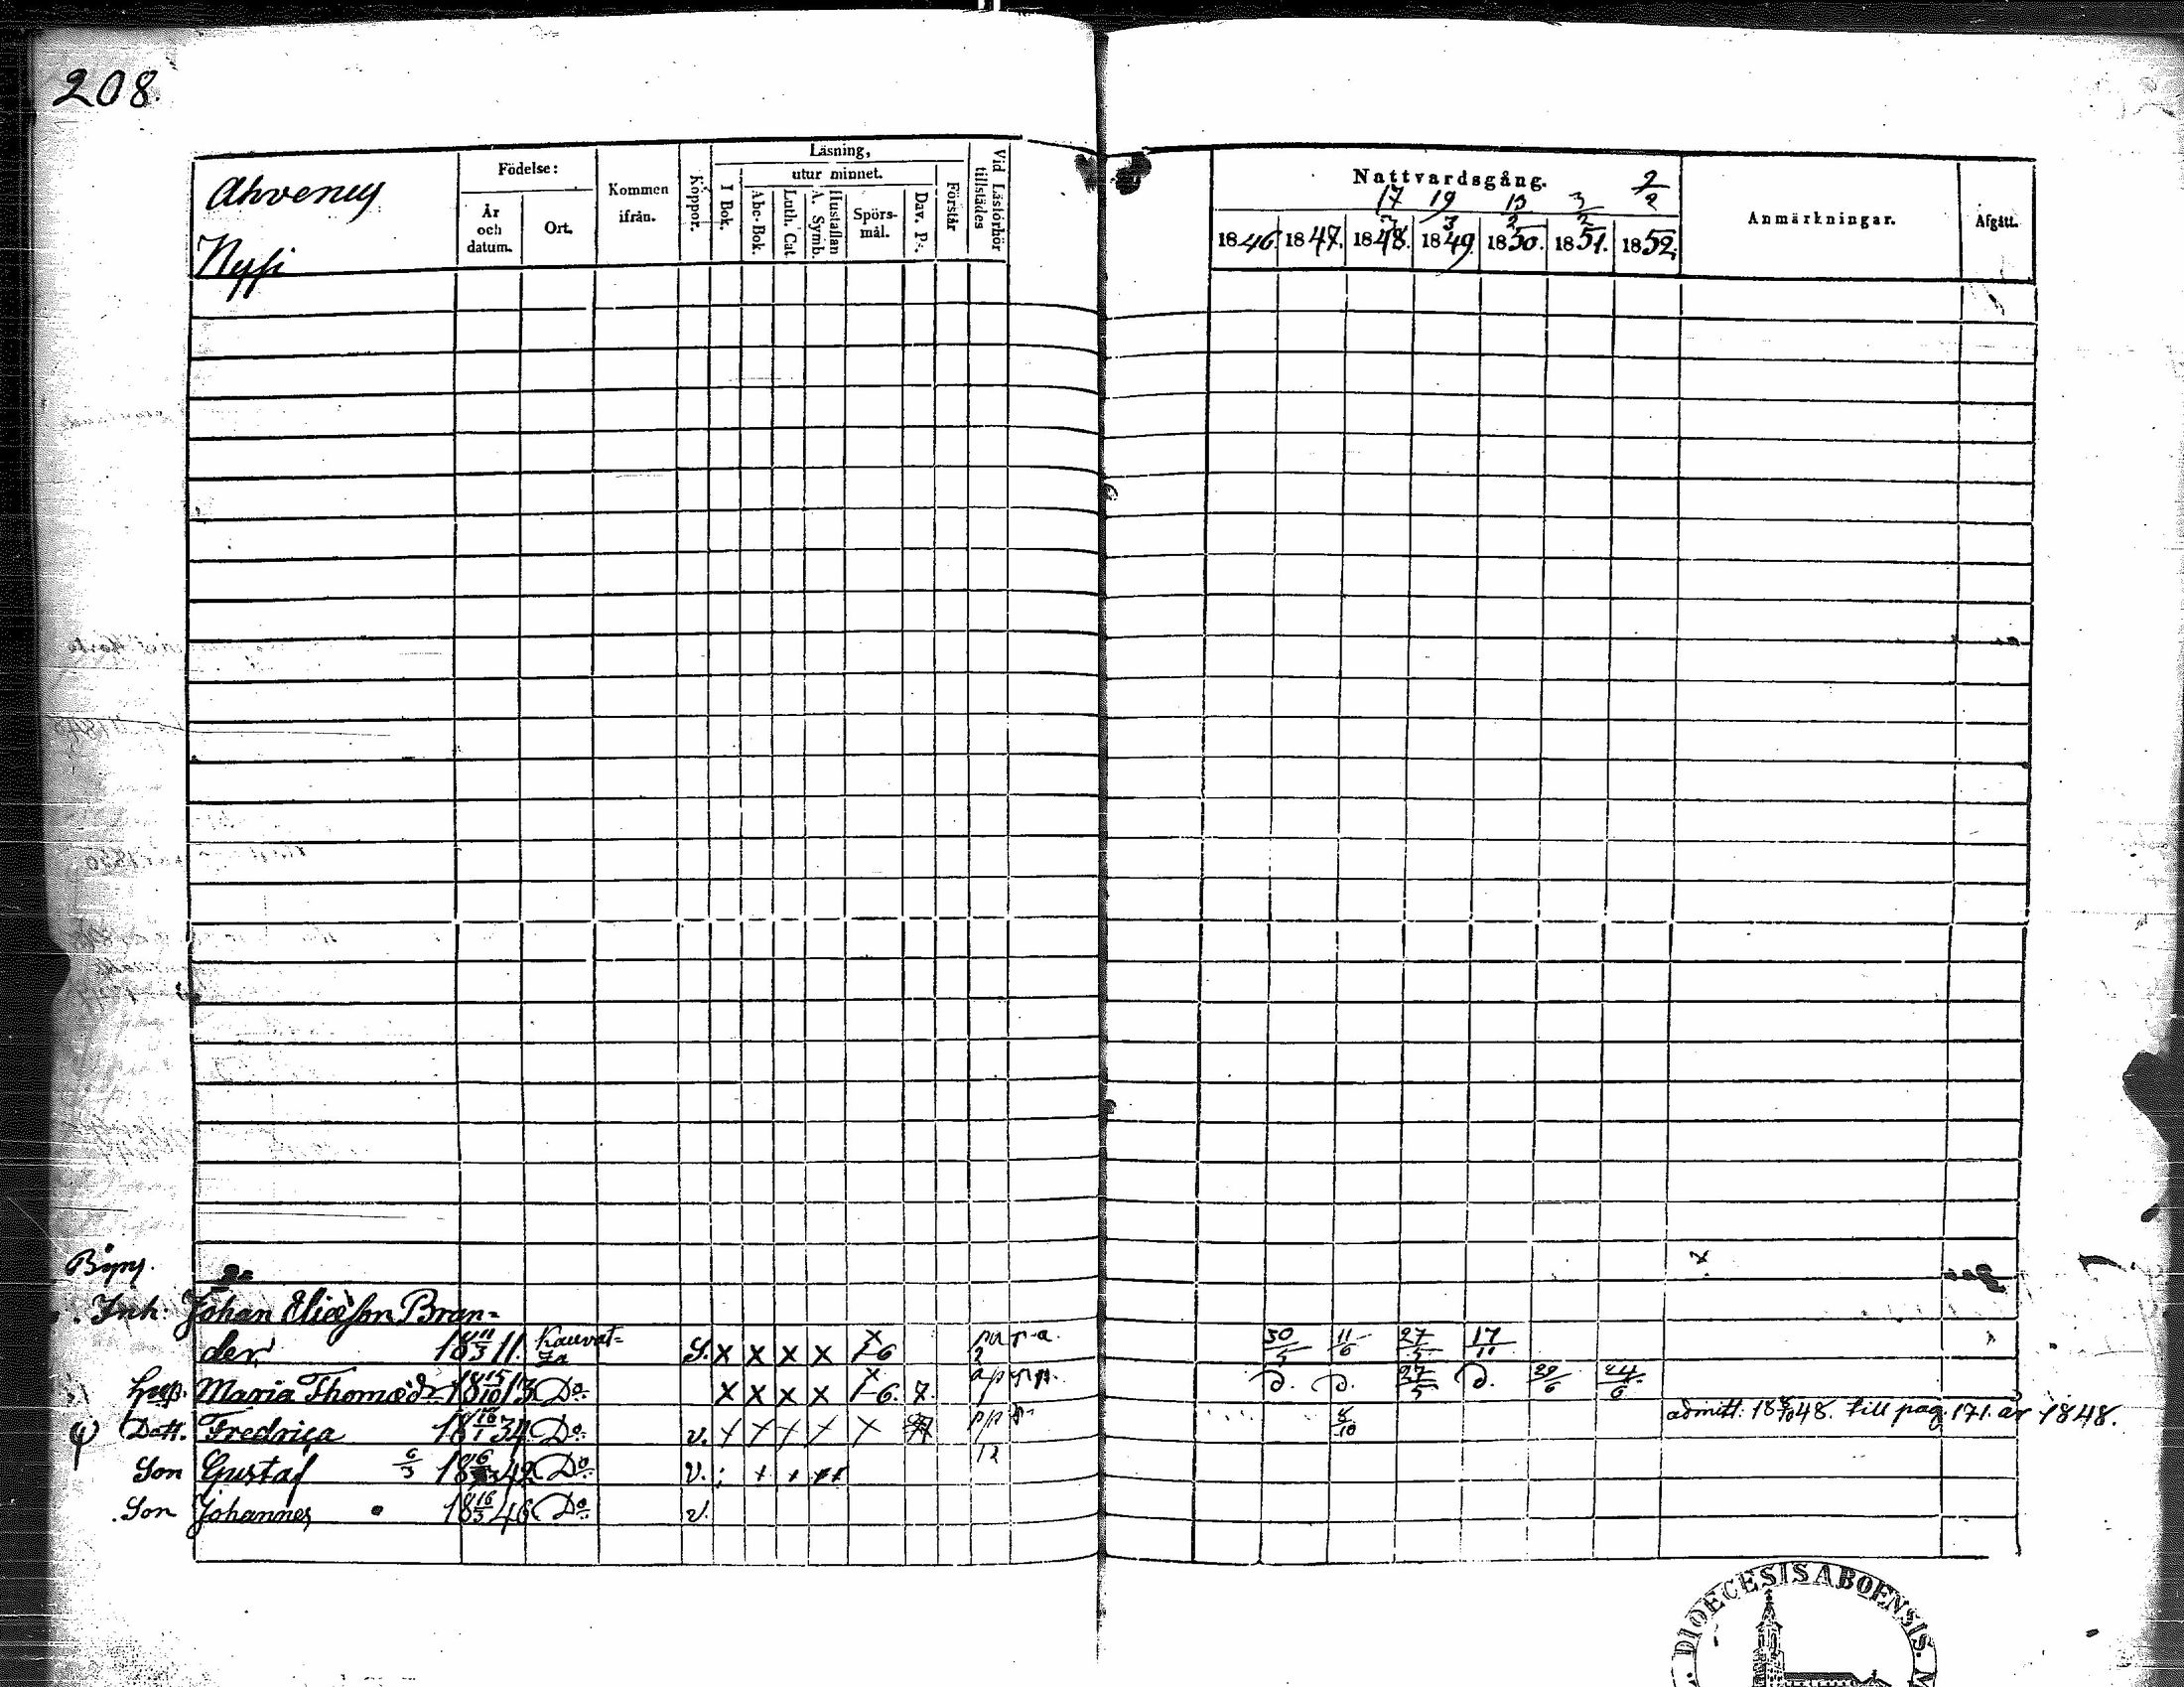 208.
Ahvenus
Nyssi
Födelse:
År och datum.
Ort.
Kommen ifrån.
Koppor.
Läsning,
I Bok.
utur minnet.
Abc-Bok.
Luth. Cat.
Hustaflan A. Symb.
Spörsmål.
Dav. Ps.
Förstår
Vid Läsförhör tillstädes
Nattvardsgång.
17/3 19/3 13/2 3/2 2/2
1846 1847. 1848. 1849. 1850. 1851. 1852.
Anmärkningar.
Afgått.
Inh. Johan Eliæsson Bran=
der 18 11/3 11. Kauvat=
za S. x x x x x 6 30/5 11/6 27/5 17/11
Maria Thomædr 18 15/10 13 Do x x x x x 6. 7. D. D. 27/5 D. 29/6 24/6
Dott. Fredrica 18 18/1 34 Do v. x x x x x 8/10 admitt. 18 8/10 48. till pag. 171. år 1848.
Son Gustaf 6/3 18 6/3 42 Do v.
12
Son Johannes 18 16/3 46 Do v.
DIOECESIS ABOENSIS.